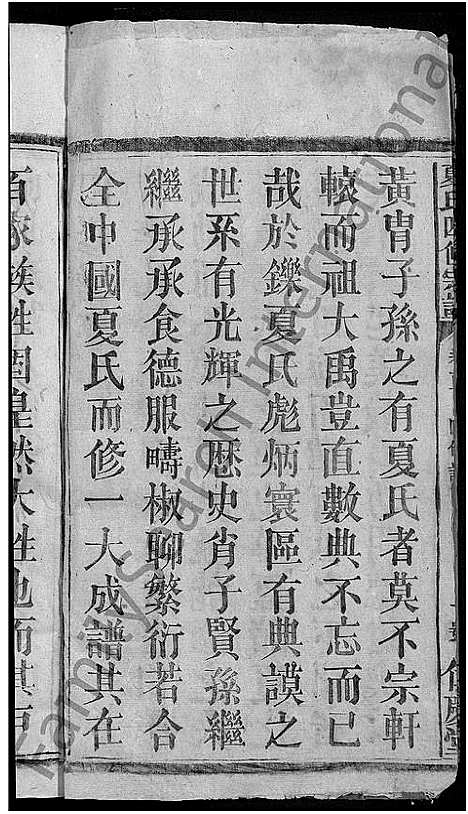 夏氏四修宗譜
黃冑子孫之有夏氏者莫不宗軒
轅而祖大禹豈直數典不忘而已
哉於鑠夏氏彪炳寰區有典謨之
世系有光輝之歷史肖子賢孫繼
繼承承食德服疇椒聊繁衍若合
全中國夏氏而修一大成譜其在
百家族姓固皇然大姓也而其
FamilySearch International